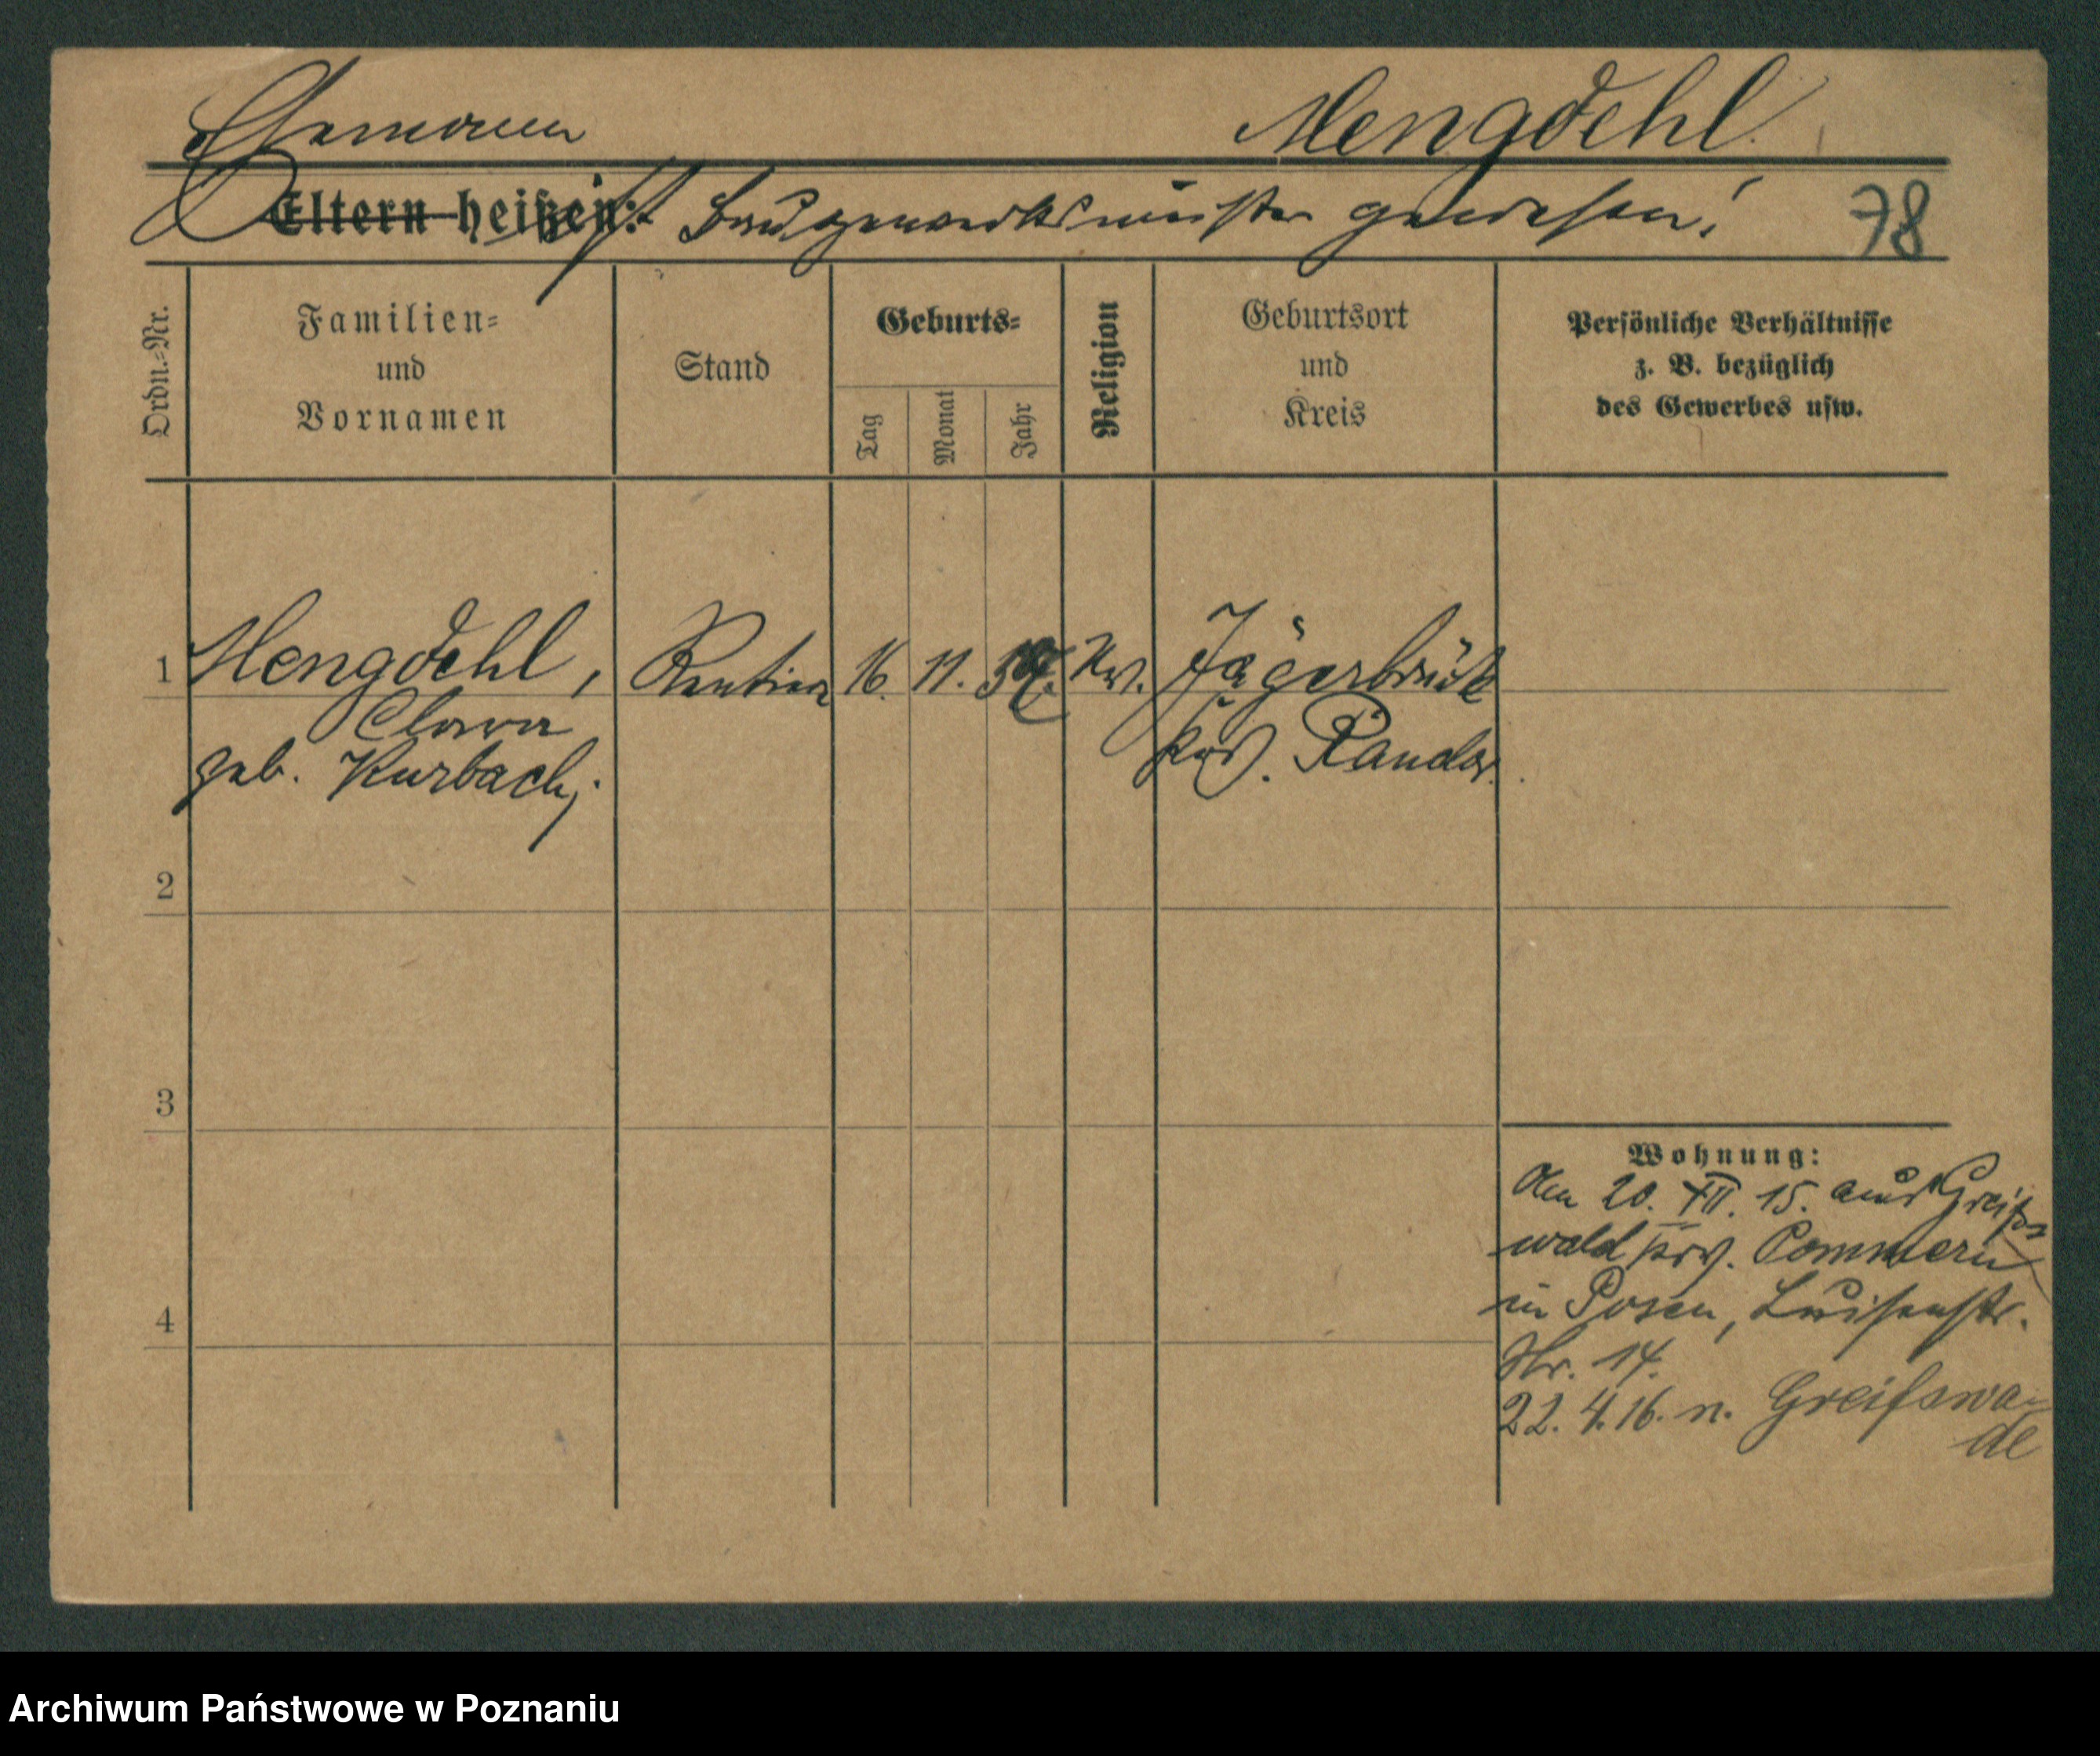 Ehemann Mengdehl.
Eltern heißen: ist Baugewerksmeister gewesen! 78
Ordn.-Nr.
Familien-
und
Vornamen
Stand
Geburts-
Tag
Monat
Jahr
Religion
Geburtsort
und
Kreis
Persönliche Verhältnisse
z. B. bezüglich
des Gewerbes usw.
1 Mengdehl, Rentiere 16. 11. Jägerbrück
Clara
geb. Kurbach; Krs. Randow.
2
3
Wohnung:
Am 20. XII. 15. aus Greifs
wald prv. Pommern
in Posen, Luisenstr.
4
Nr. 14.
22. 4. 16. n. Greifswa-
de
Archiwum Państwowe w Poznaniu